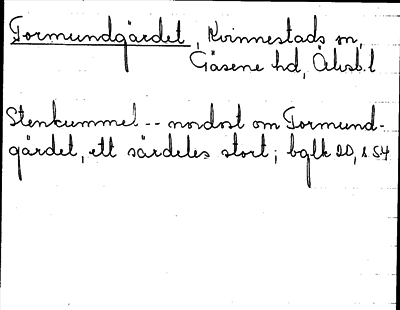 Formundgärdet, Kvinnestads sn,
Gäsene hd, Älvsb.l
Stenkummel -- nordost om Formund-
gärdet, ett särdeles stort; bglk 20, s 54